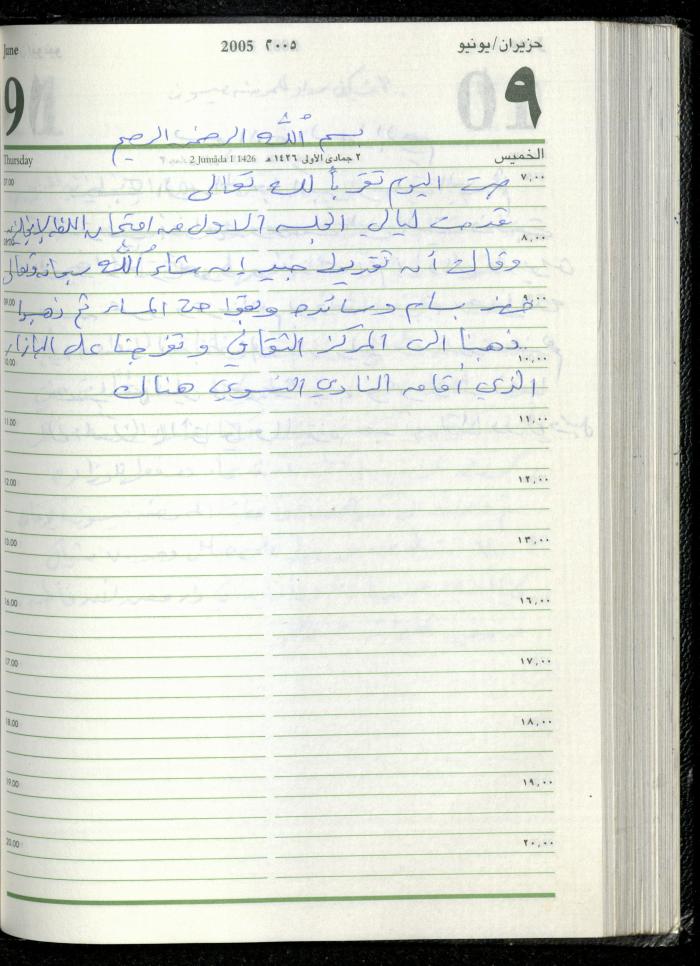 June 2005 ٢٠٠٥ حزيران/يونيو
9 ٩
بسم الله الرحمن الرحيم
Thursday 2 Jumāda I 1426 ٢ جمادى الأولى ١٤٢٦هـ الخميس
07.00 صمت اليوم تقرباً لله تعالى ٧,٠٠
قدمت ليالي الجلسه الاولى من امتحان اللغه الإنجليزيه
08.00 ٨,٠٠
وقالت أنه تقديرها جيد إن شاء الله سبحانه وتعالى
09.00 حضر بسام وسائده وبقوا حتى المساء ثم ذهبوا ٩,٠٠
ذهبنا الى المركز الثقافي وتفرجنا على البازار
10.00 ١٠,٠٠
الذي أقامه النادي النسوي هناك
11.00 ١١,٠٠
12.00 ١٢,٠٠
13.00 ١٣,٠٠
16.00 ١٦,٠٠
17.00 ١٧,٠٠
18.00 ١٨,٠٠
19.00 ١٩,٠٠
20.00 ٢٠,٠٠